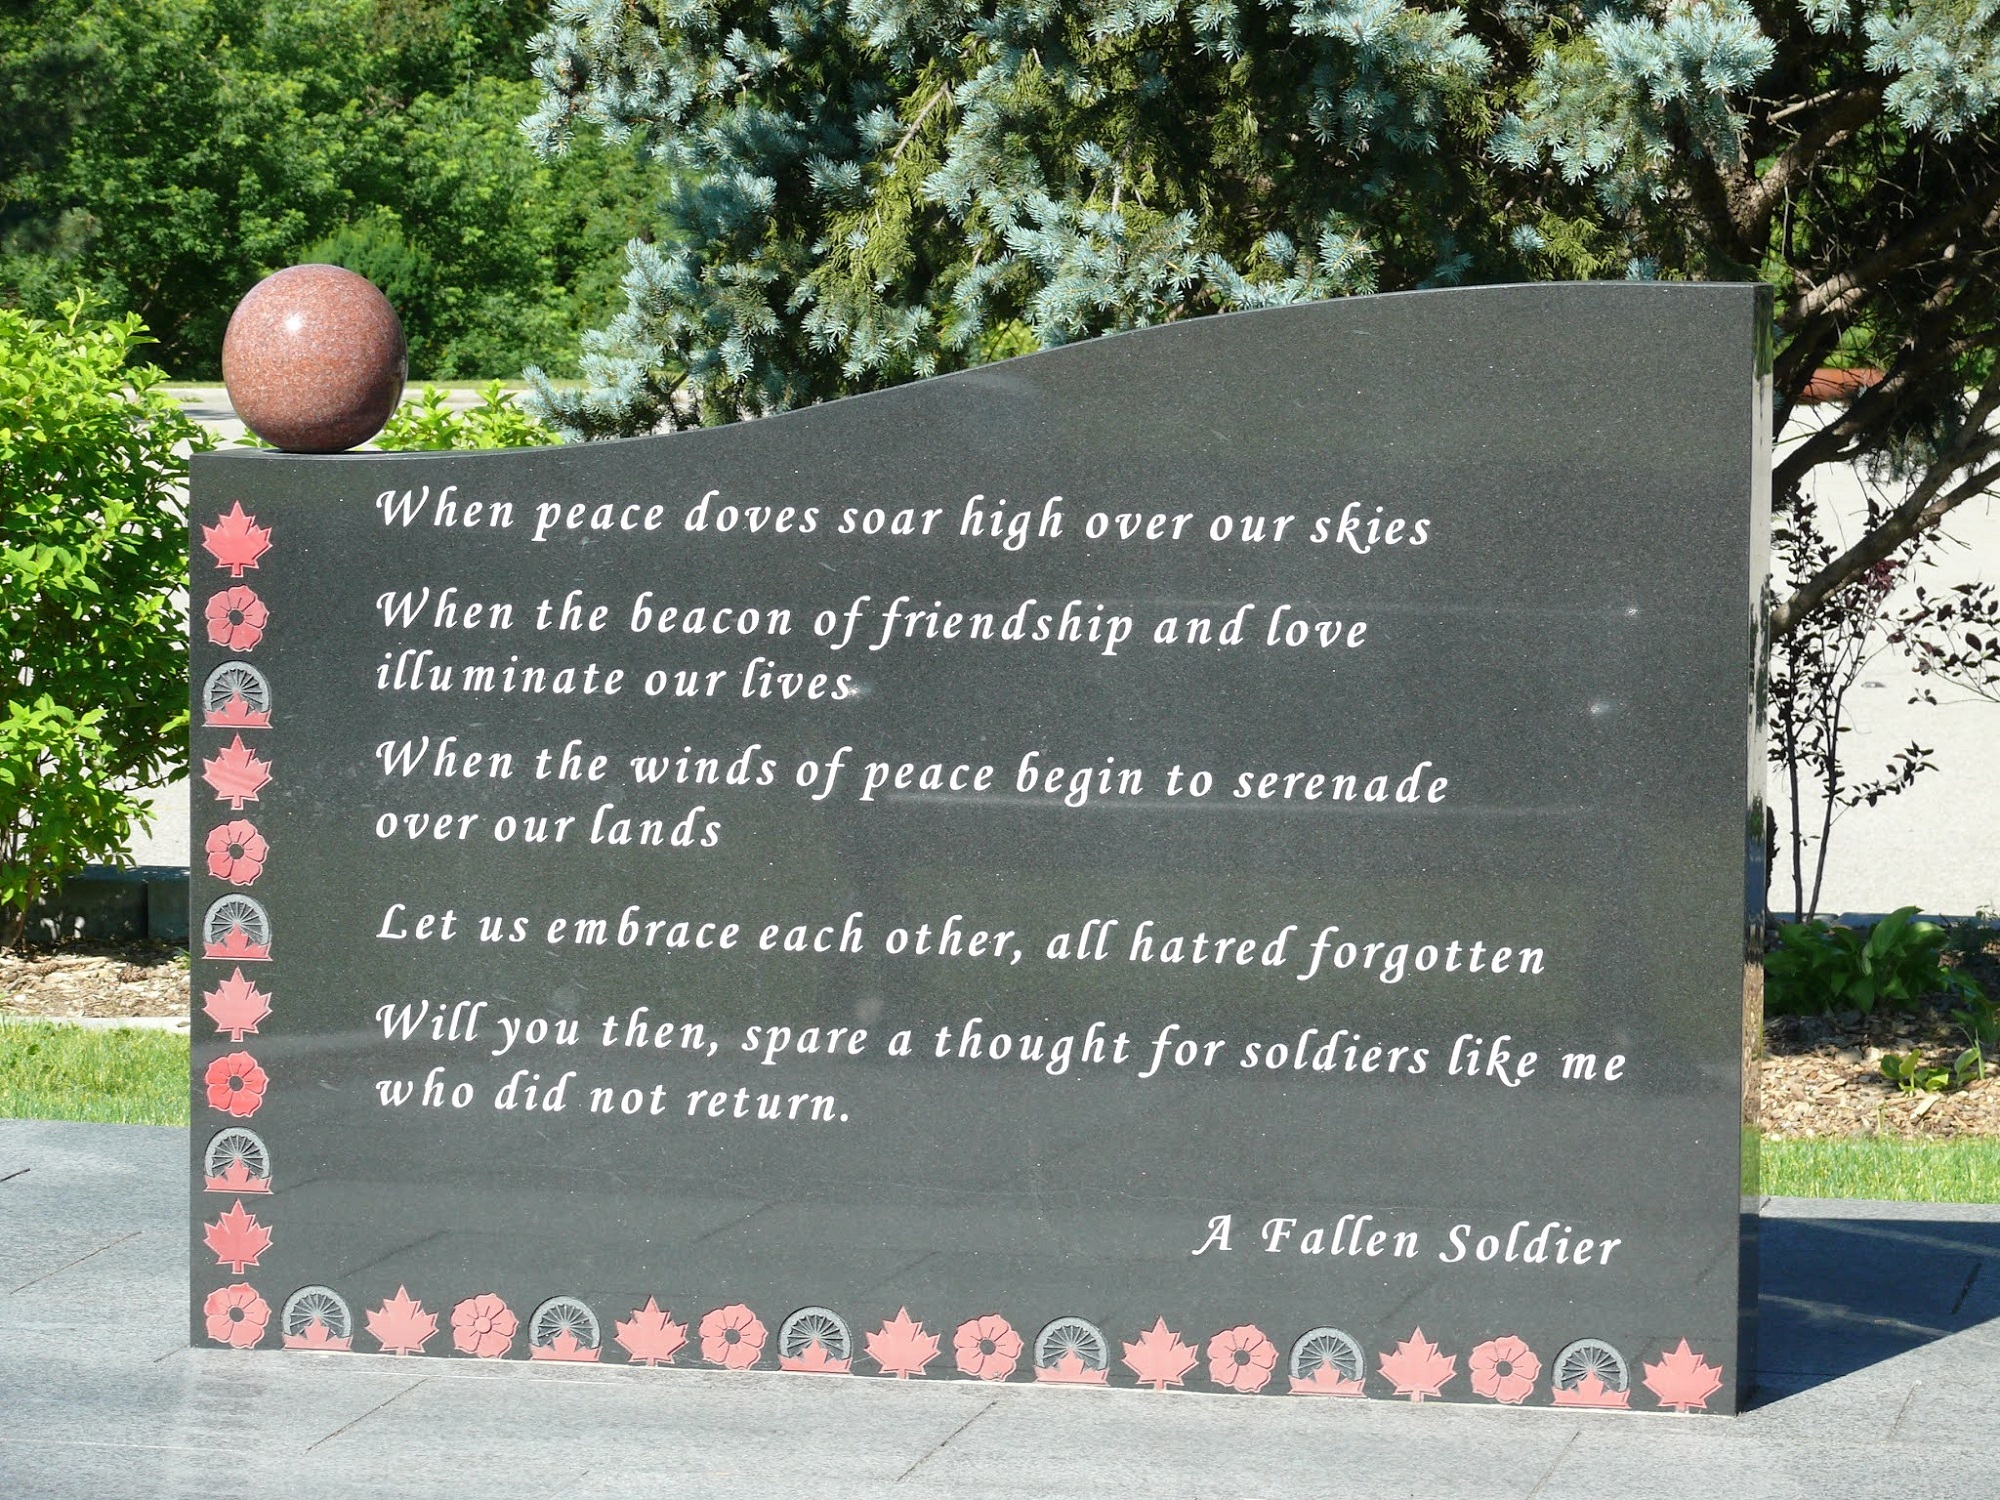 When peace doves soar high over our skies
When the beacon of friendship and love
illuminate our lives
When the winds of peace begin to serenade
over our lands
Let us embrace each other, all hatred forgotten
Will you then, spare a thought for soldiers like me
who did not return.
A Fallen Soldier